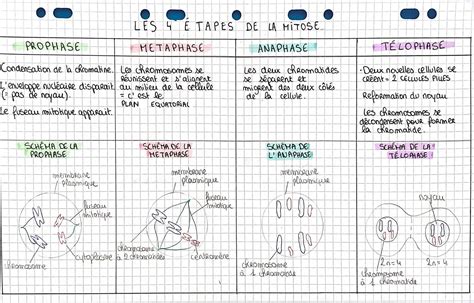 LES 4 ÉTAPES DE LA MITOSE
PROPHASE
Condensation de la chromatine.
L'enveloppe nucléaire disparait
(= pas de noyau).
Le fuseau mitotique apparait.
METAPHASE
Les chromosomes se
réunissent et s'alignent
au milieu de la cellule
= c'est le
PLAN EQUATORIAL
ANAPHASE
Les deux chromatides
se séparent et
migrent des deux côtés
de la cellule.
TÉLOPHASE
Deux nouvelles cellules se
créent = 2 CELLULES FILLES
Reformation du noyau
Les chromosomes se
décondensent pour former
la chromatide.
SCHÉMA DE LA
PROPHASE
membrane
plasmique
fuseau
mitotique
cytoplasme
chromosome
SCHÉMA DE LA
METAPHASE
membrane
plasmique
fuseau
mitotique
chromosome
à 2 chromatides
centromère
SCHÉMA DE
L'ANAPHASE
membrane
plasmique
chromosome
à 1 chromatide
SCHÉMA DE LA
TÉLOPHASE
noyau
chromosome
à 1 chromatide
2n=4
2n=4